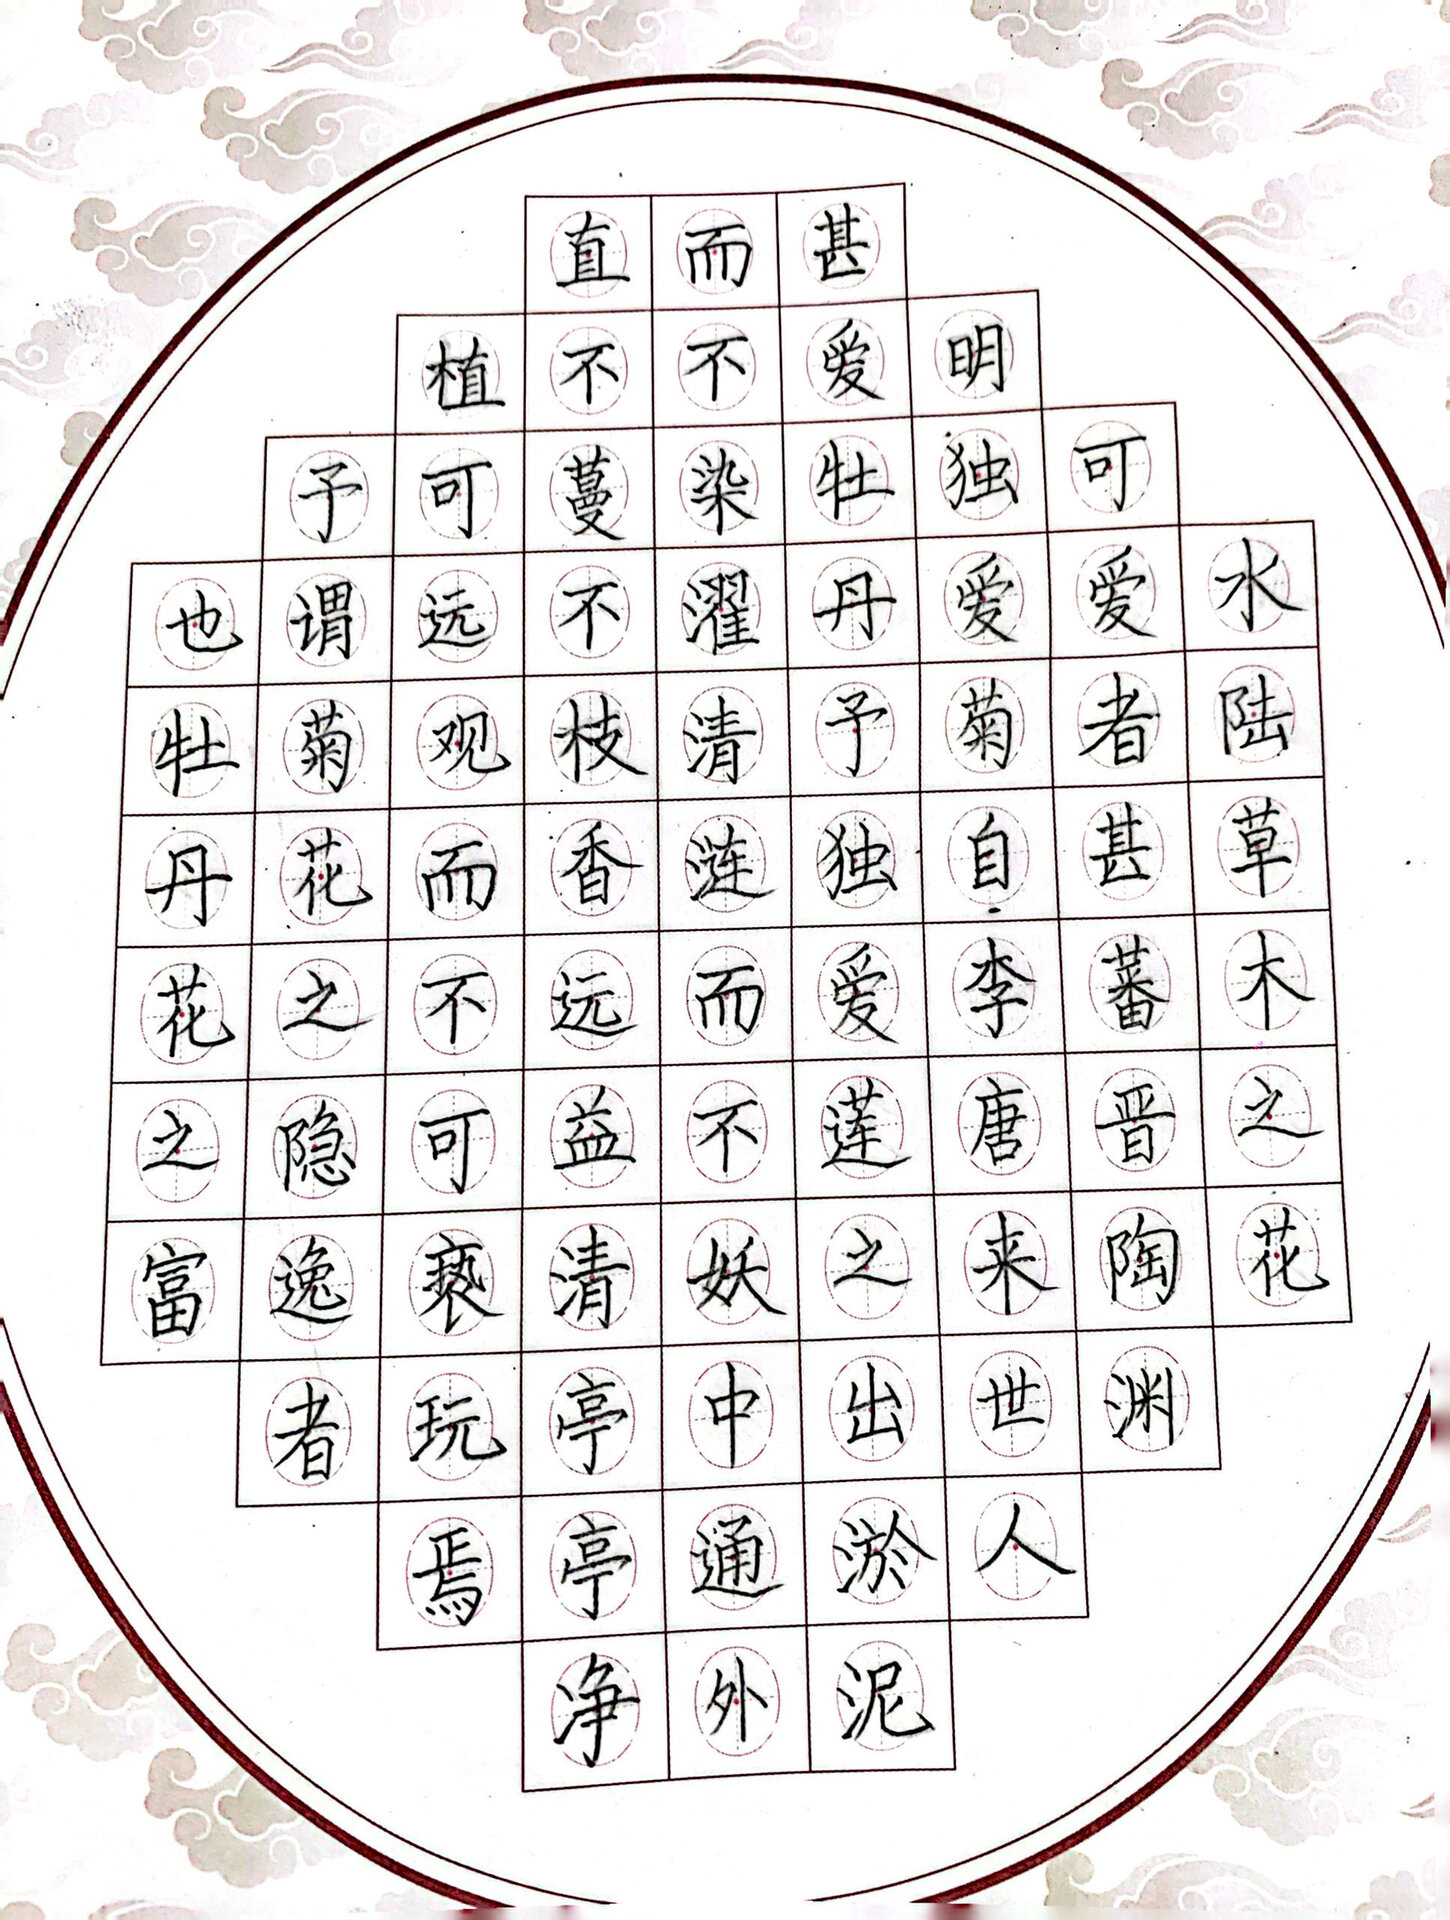 水陆草木之花
可爱者甚蕃晋陶渊
明独爱菊自李唐来世人
甚爱牡丹予独爱莲之出淤泥
而不染濯清涟而不妖中通外
直不蔓不枝香远益清亭亭净
植可远观而不可亵玩焉
予谓菊花之隐逸者
也牡丹花之富